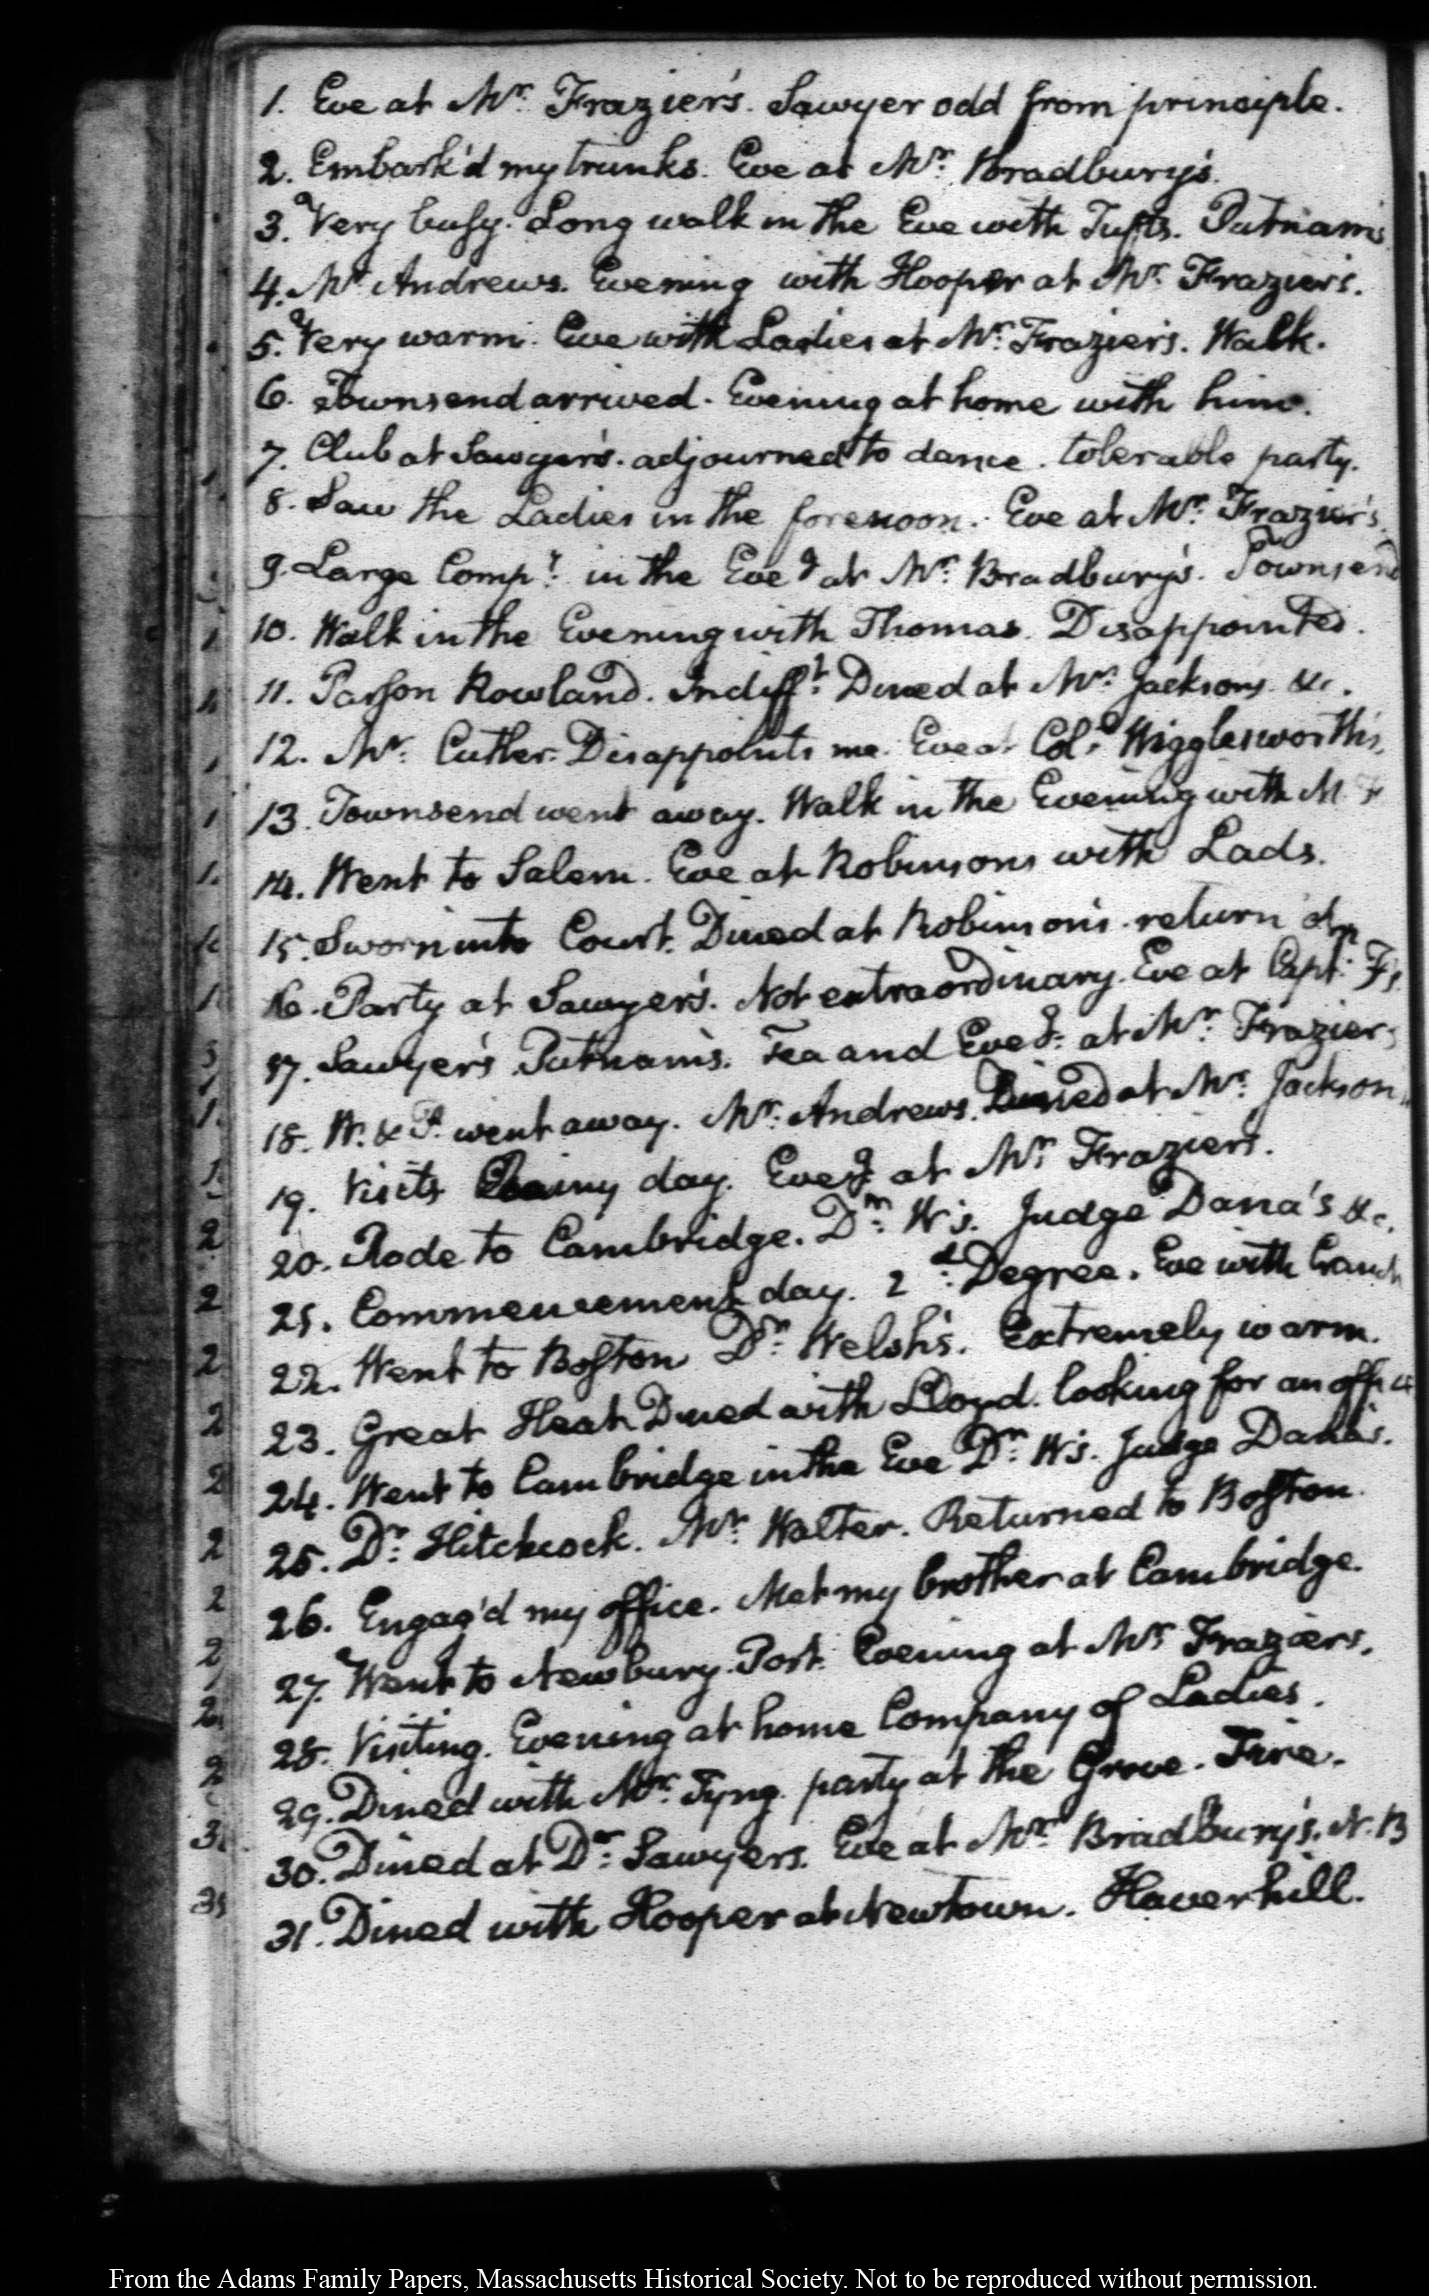 1. Eve at Mr. Frazier's. Sawyer odd from principle.
2. Embark'd my trunks. Eve at Mr. Bradbury's.
3. Very busy. Long walk in the Eve with Tufts. Putnam's
4. Mr. Andrews. Evening with Hooper at Mr. Frazier's.
5. Very warm. Eve with Ladies at Mr. Frazier's. Walk.
6. Townsend arrived. Evening at home with him.
7. Club at Sawyer's. adjourned to dance. tolerable party.
8. Saw the Ladies in the forenoon. Eve at Mr. Frazier's.
9. Large Compy. in the Eveg at Mr. Bradbury's. Townsend
10. Walk in the Evening with Thomas. Disappointed.
11. Parson Rowland. Indifft. Dined at Mr. Jackson's &c.
12. Mr. Cutler. Disappoints me. Eve at Colo. Wigglesworth's.
13. Townsend went away. Walk in the Evening with M. F
14. Went to Salem. Eve at Robinsons with Lads.
15. Sworn into Court. Dined at Robinson's. return'd
16. Party at Sawyer's. Not extraordinary. Eve at Capt: F's
17. Sawyer's Putnam's. Tea and Eveg. at Mr. Frazier's
18. W. & P. went away. Mr. Andrews. Dined at Mr. Jackson's
19. Visits Rainy day. Eveg at Mr. Fraziers.
20. Rode to Cambridge. Dr. W's. Judge Dana's &c.
21. Commencement day. 2d. Degree. Eve with Cranch
22. Went to Boston Dr. Welsh's. Extremely warm.
23. Great Heat Dined with Lloyd. looking for an office
24. Went to Cambridge in the Eve Dr. W's. Judge Dana's.
25. Dr. Hitchcock. Mr. Walter. Returned to Boston.
26. Engag'd my office. Met my brother at Cambridge.
27. Went to Newbury-Port. Evening at Mr. Fraziers.
28. Visiting. Evening at home Company of Ladies.
29. Dined with Mr. Tyng. party at the Grove. Fire.
30. Dined at Dr. Sawyers. Eve at Mr. Bradbury's. N.B
31. Dined with Hooper at Newtown. Haverhill.
From the Adams Family Papers, Massachusetts Historical Society. Not to be reproduced without permission.